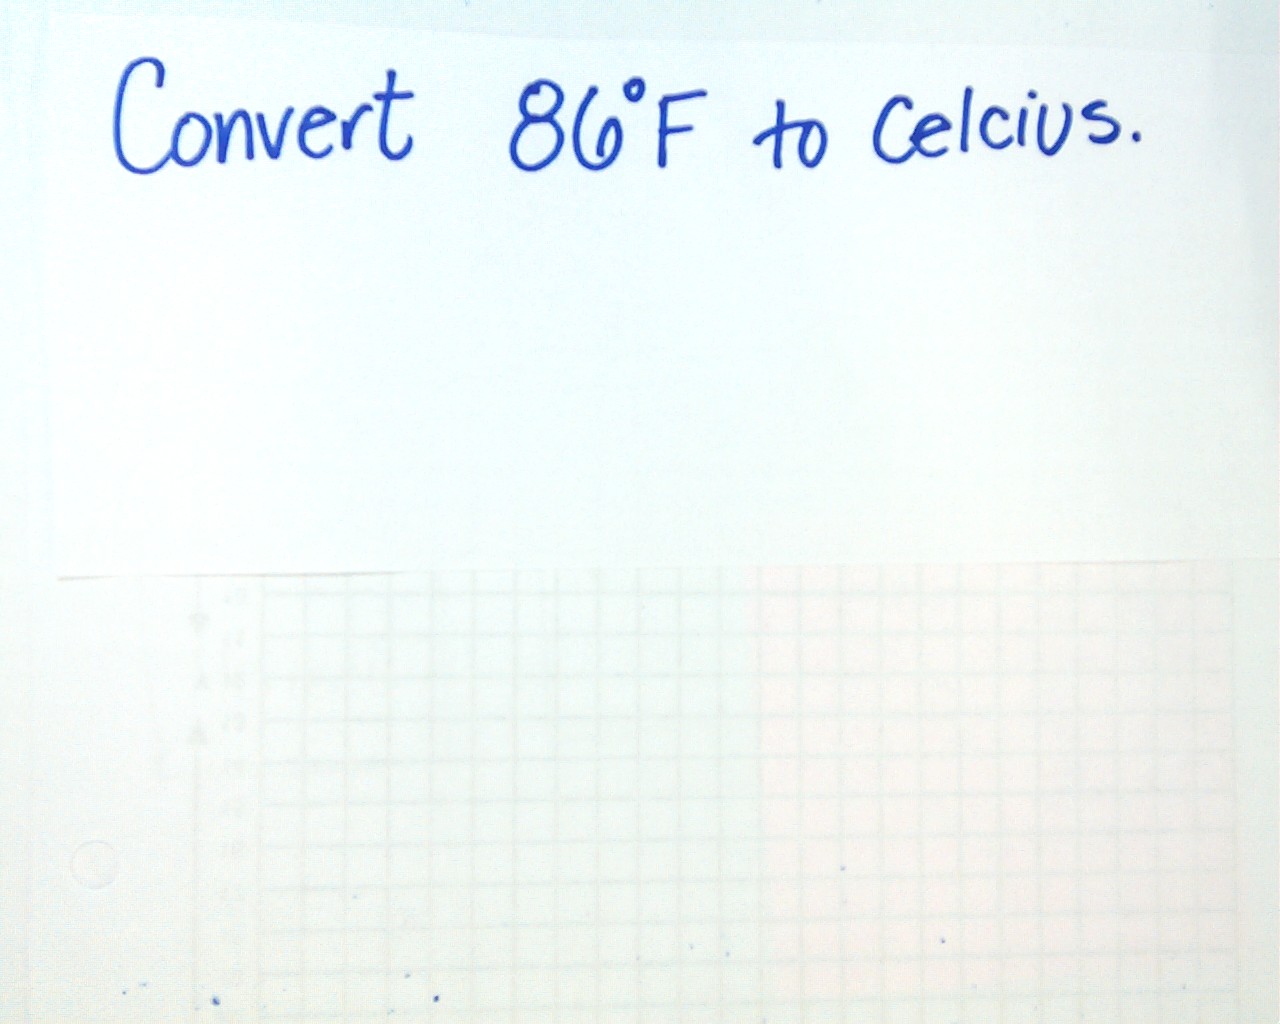 Convert 86°F to Celcius.